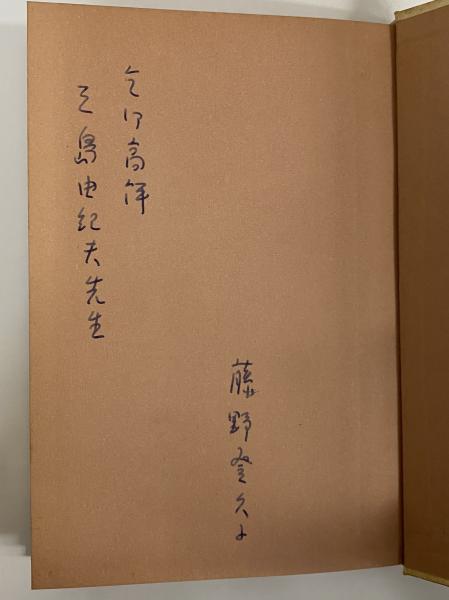 藤野登久子
乞御高評
三島由紀夫先生